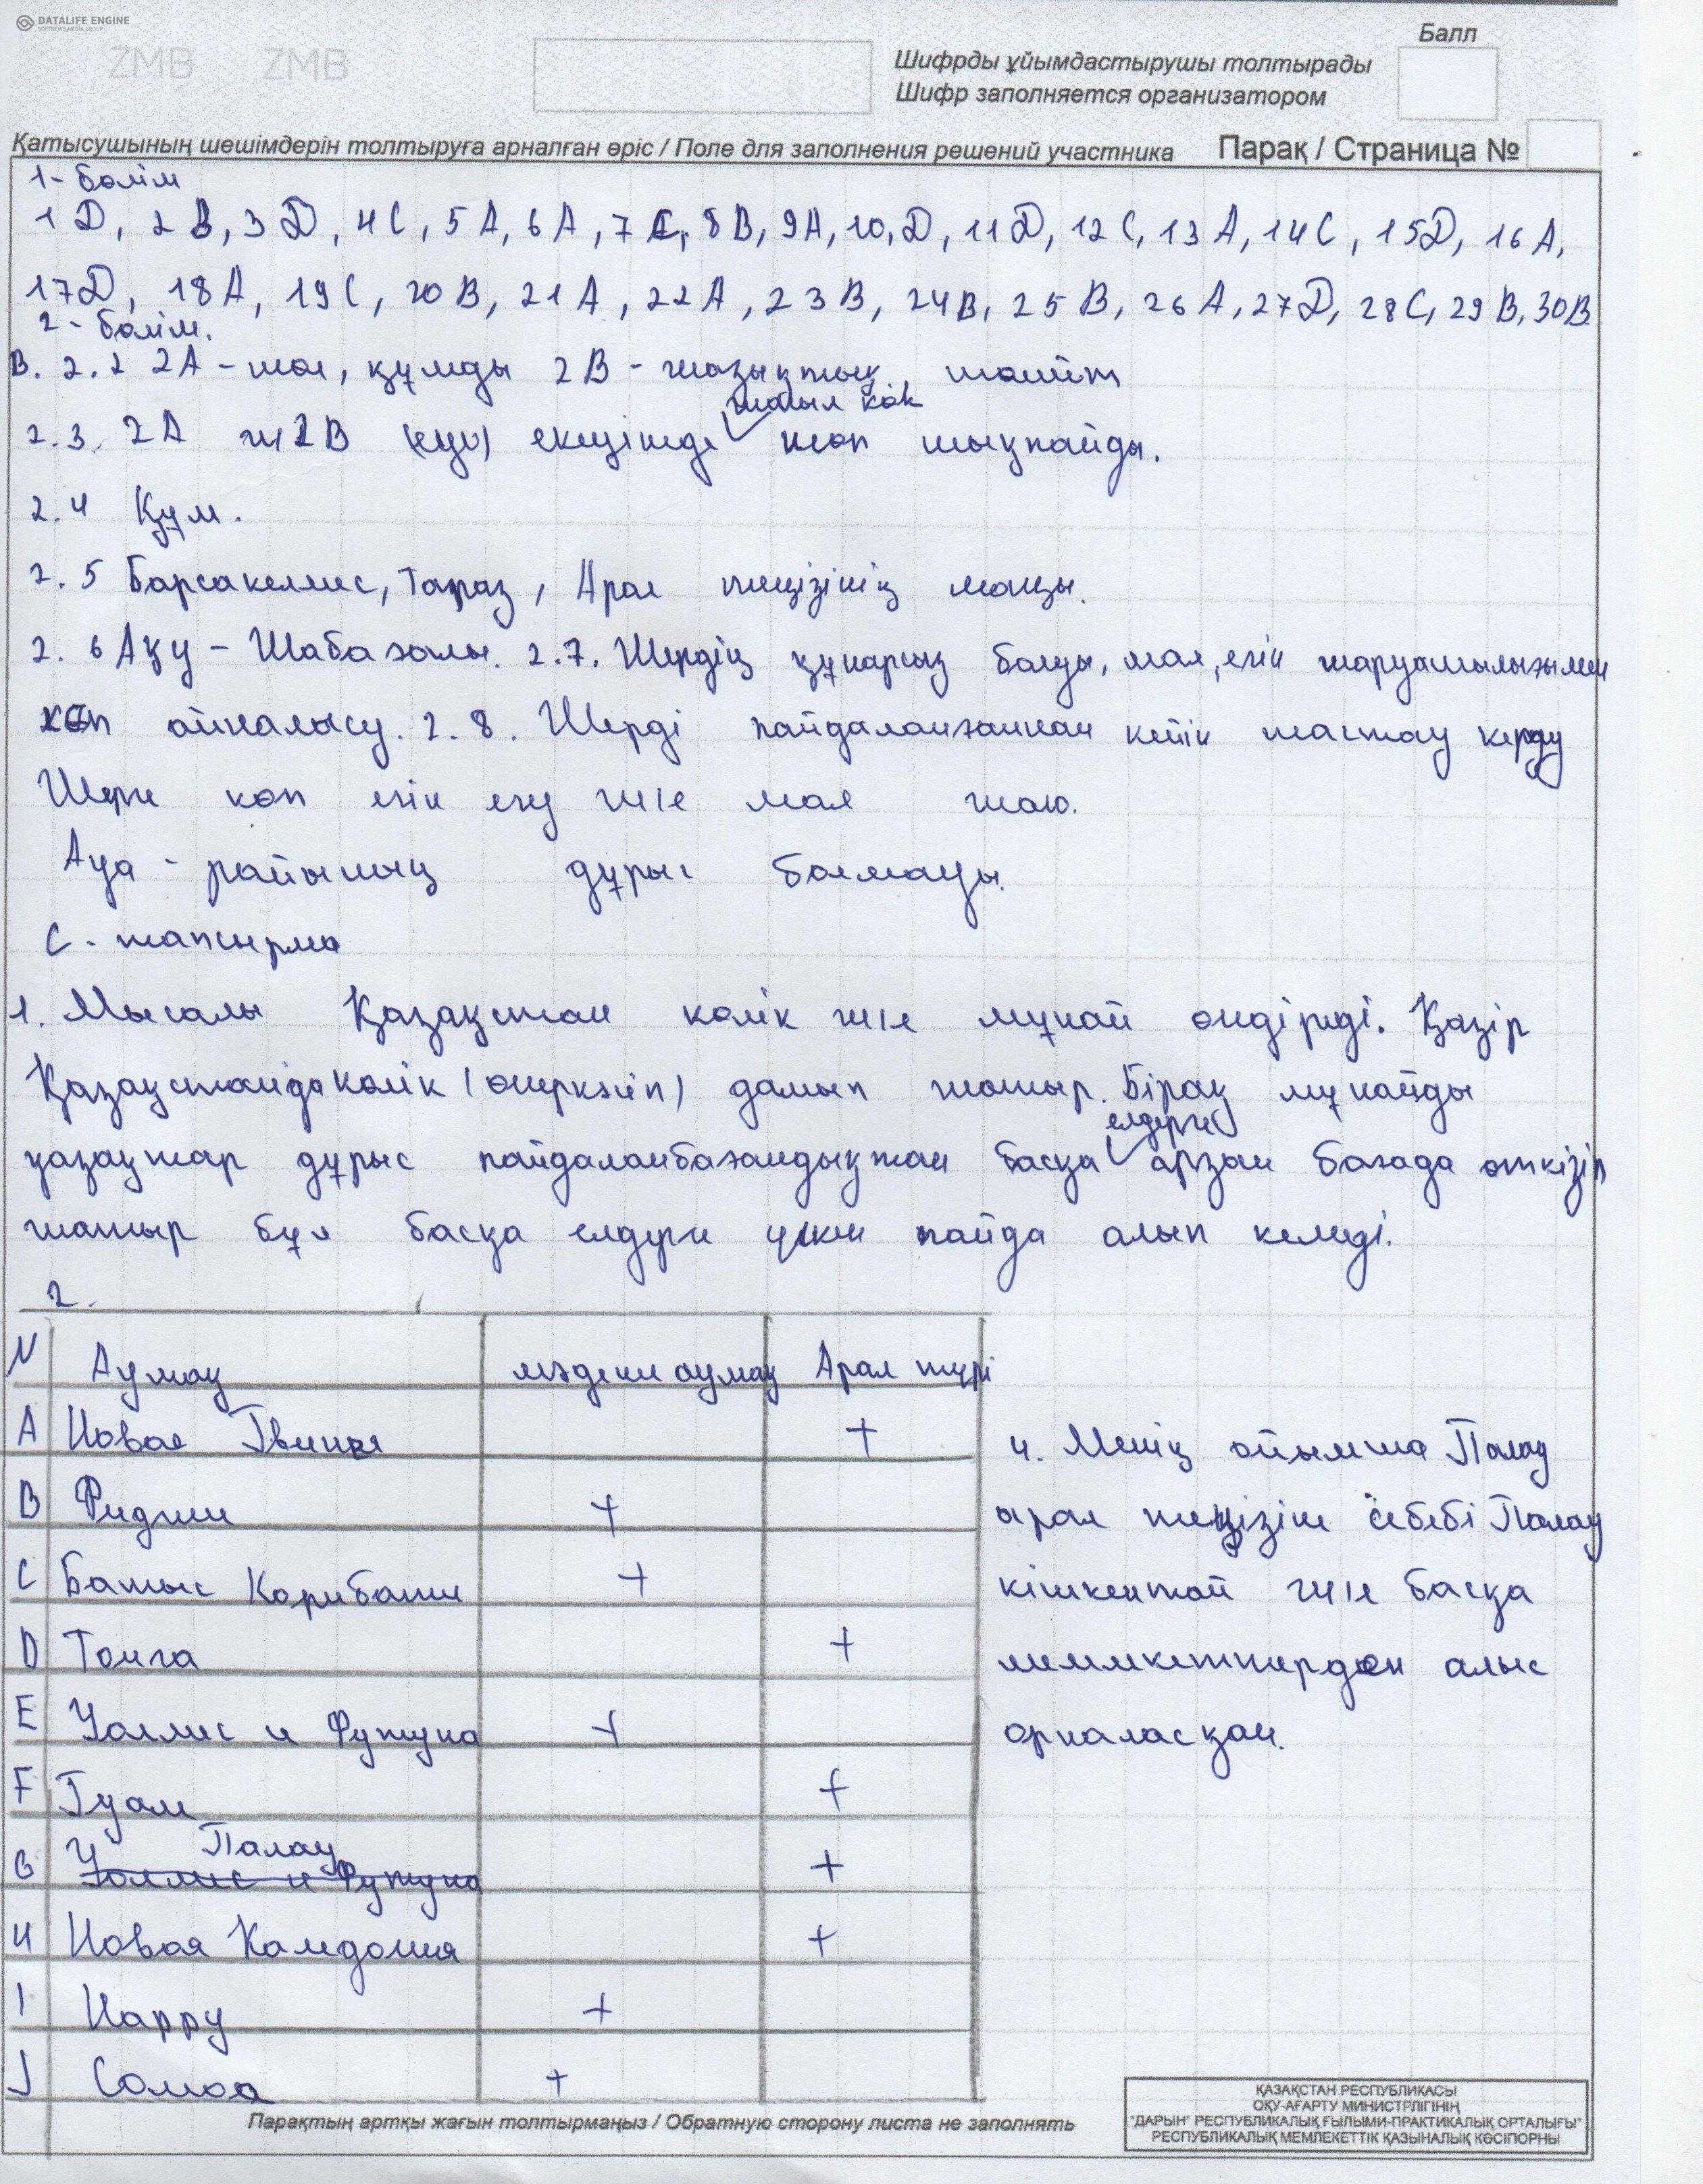 DATALIFE ENGINE
SOFTNEWS MEDIA GROUP
ZMB ZMB
Балл
Шифрды ұйымдастырушы толтырады
Шифр заполняется организатором
Қатысушының шешімдерін толтыруға арналған өріс / Поле для заполнения решений участника Парақ / Страница №
1- бөлім
1 D, 2 B, 3 D, 4 C, 5 A, 6 A, 7 C, 8 B, 9 A, 10, D, 11 D, 12 C, 13 A, 14 C, 15 D, 16 A,
17 D, 18 A, 19 C, 20 B, 21 A, 22 A, 23 B, 24 B, 25 B, 26 A, 27 D, 28 C, 29 B, 30 B
2- бөлім.
B. 2.2 2A - шөл, құмды 2B - жазықтық,
жасыл көк
2.3. 2A ж 2B екеуінде шөп шықпайды.
2.4 Құм.
2.5 Барсакелмес, Тараз, Арал теңізінің маңы.
2.6 Аққу - Шабағалы. 2.7. Жердің құнарсыз болуы, мал, егін шаруашылығымен
көп айналысу. 2.8. Жерді пайдаланғаннан кейін тастау керду
Жерге көп егін егу ж/е мал жаю.
Ауа - райының дұрыс болмауы.
C - тапсырма
1. Мысалы Қазақстан көлік ж/е мұнай өндіреді. Қазір
Қазақстанда көлік (өнеркәсіп) дамып жатыр. Бірақ мұнайды
елдерге
қазақтар дұрыс пайдаланбағандықтан басқа арзан бағада өткізіп
жатыр бұл басқа елдерге үлкен пайда алып келеді.
2.
N Аумақ мәдени аумақ Арал түрі
A Новая Гвинея +
B Фиджи +
C Батыс Карибати +
D Тонга +
E Уоллис и Футуна +
F Гуам +
Палау
G Уоллис и Футуна +
H Новая Каледония +
I Нарру +
J Самоа +
4. Менің ойымша Палау
арал теңізіне себебі Палау
кішкентай ж/е басқа
мемлекеттерден алыс
орналасқан.
Парақтың артқы жағын толтырмаңыз / Обратную сторону листа не заполнять
ҚАЗАҚСТАН РЕСПУБЛИКАСЫ
ОҚУ-АҒАРТУ МИНИСТРЛІГІНІҢ
"ДАРЫН" РЕСПУБЛИКАЛЫҚ ҒЫЛЫМИ-ПРАКТИКАЛЫҚ ОРТАЛЫҒЫ"
РЕСПУБЛИКАЛЫҚ МЕМЛЕКЕТТІК ҚАЗЫНАЛЫҚ КӘСІПОРНЫ